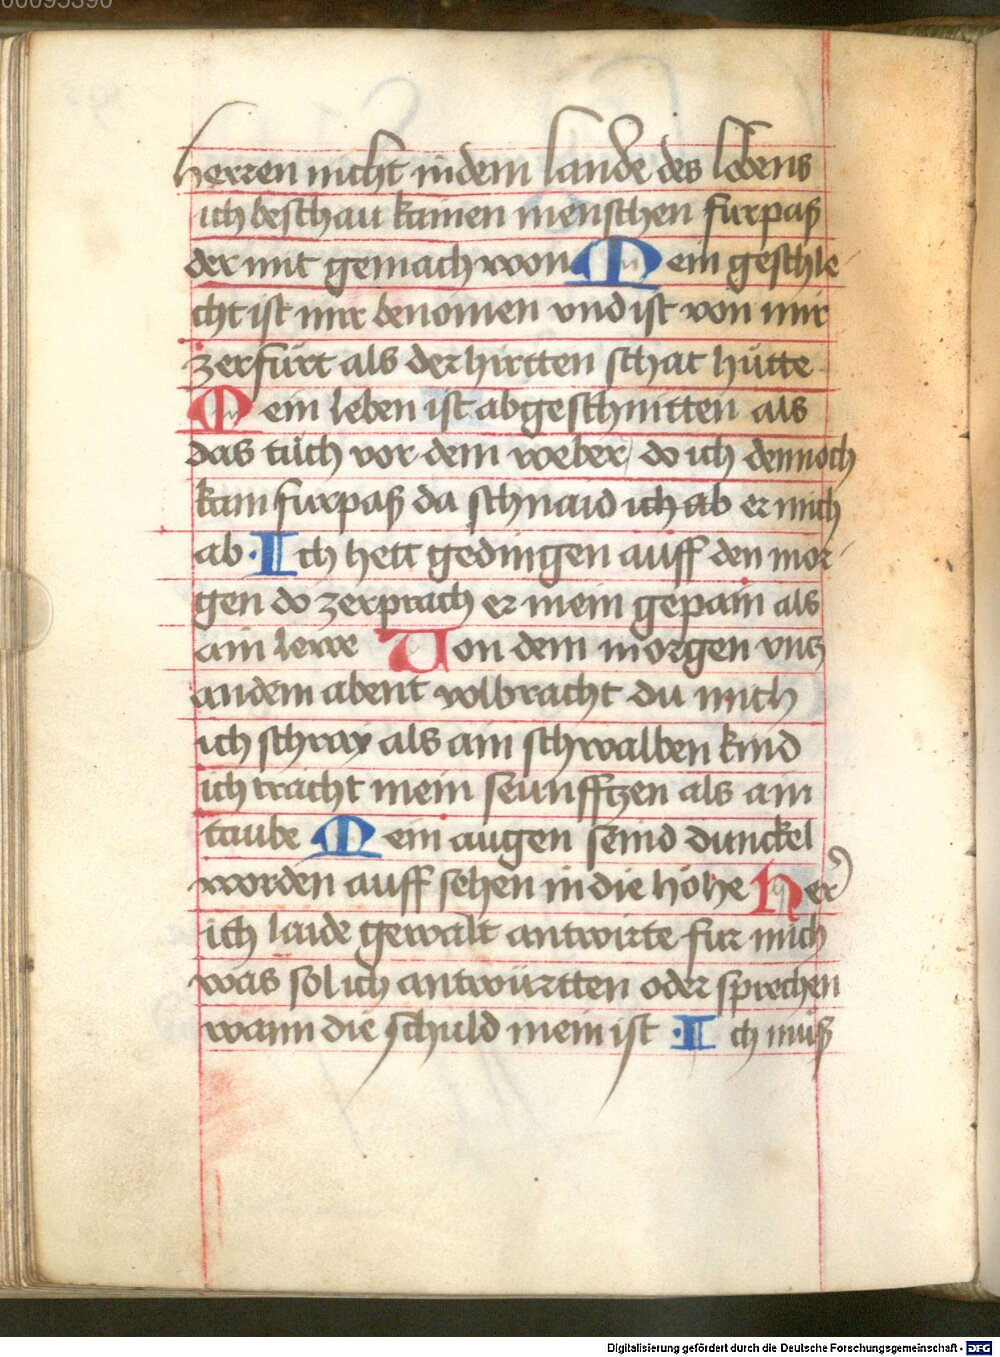 00095390
herren nicht in dem lande des lebens
ich beschau kainen menschen furpaß
der mit gemach won Mein geschle
cht ist mir benomen vnd ist von mir
zerfürt als der hirtten schat hütte
Mein leben ist abgeschnitten als
das tůch vor dem weber do ich dennoch
kam furpaß da schnaid ich ab er mich
ab · Ich hett gedingen auff den mor
gen do zerprach er mein gepain als
ain lewe Von dem morgen vncz
an dem abent volbracht du mich
ich schray als ain schwalben kind
ich tracht mein seunfftzen als am
taube Mein augen seind dunckel
worden auff sehen in die höhe Her
ich laide gewalt antwirte fur mich
was sol ich antwürtten oder sprechen
wann die schuld mein ist · Ich můß
Digitalisierung gefördert durch die Deutsche Forschungsgemeinschaft - DFG